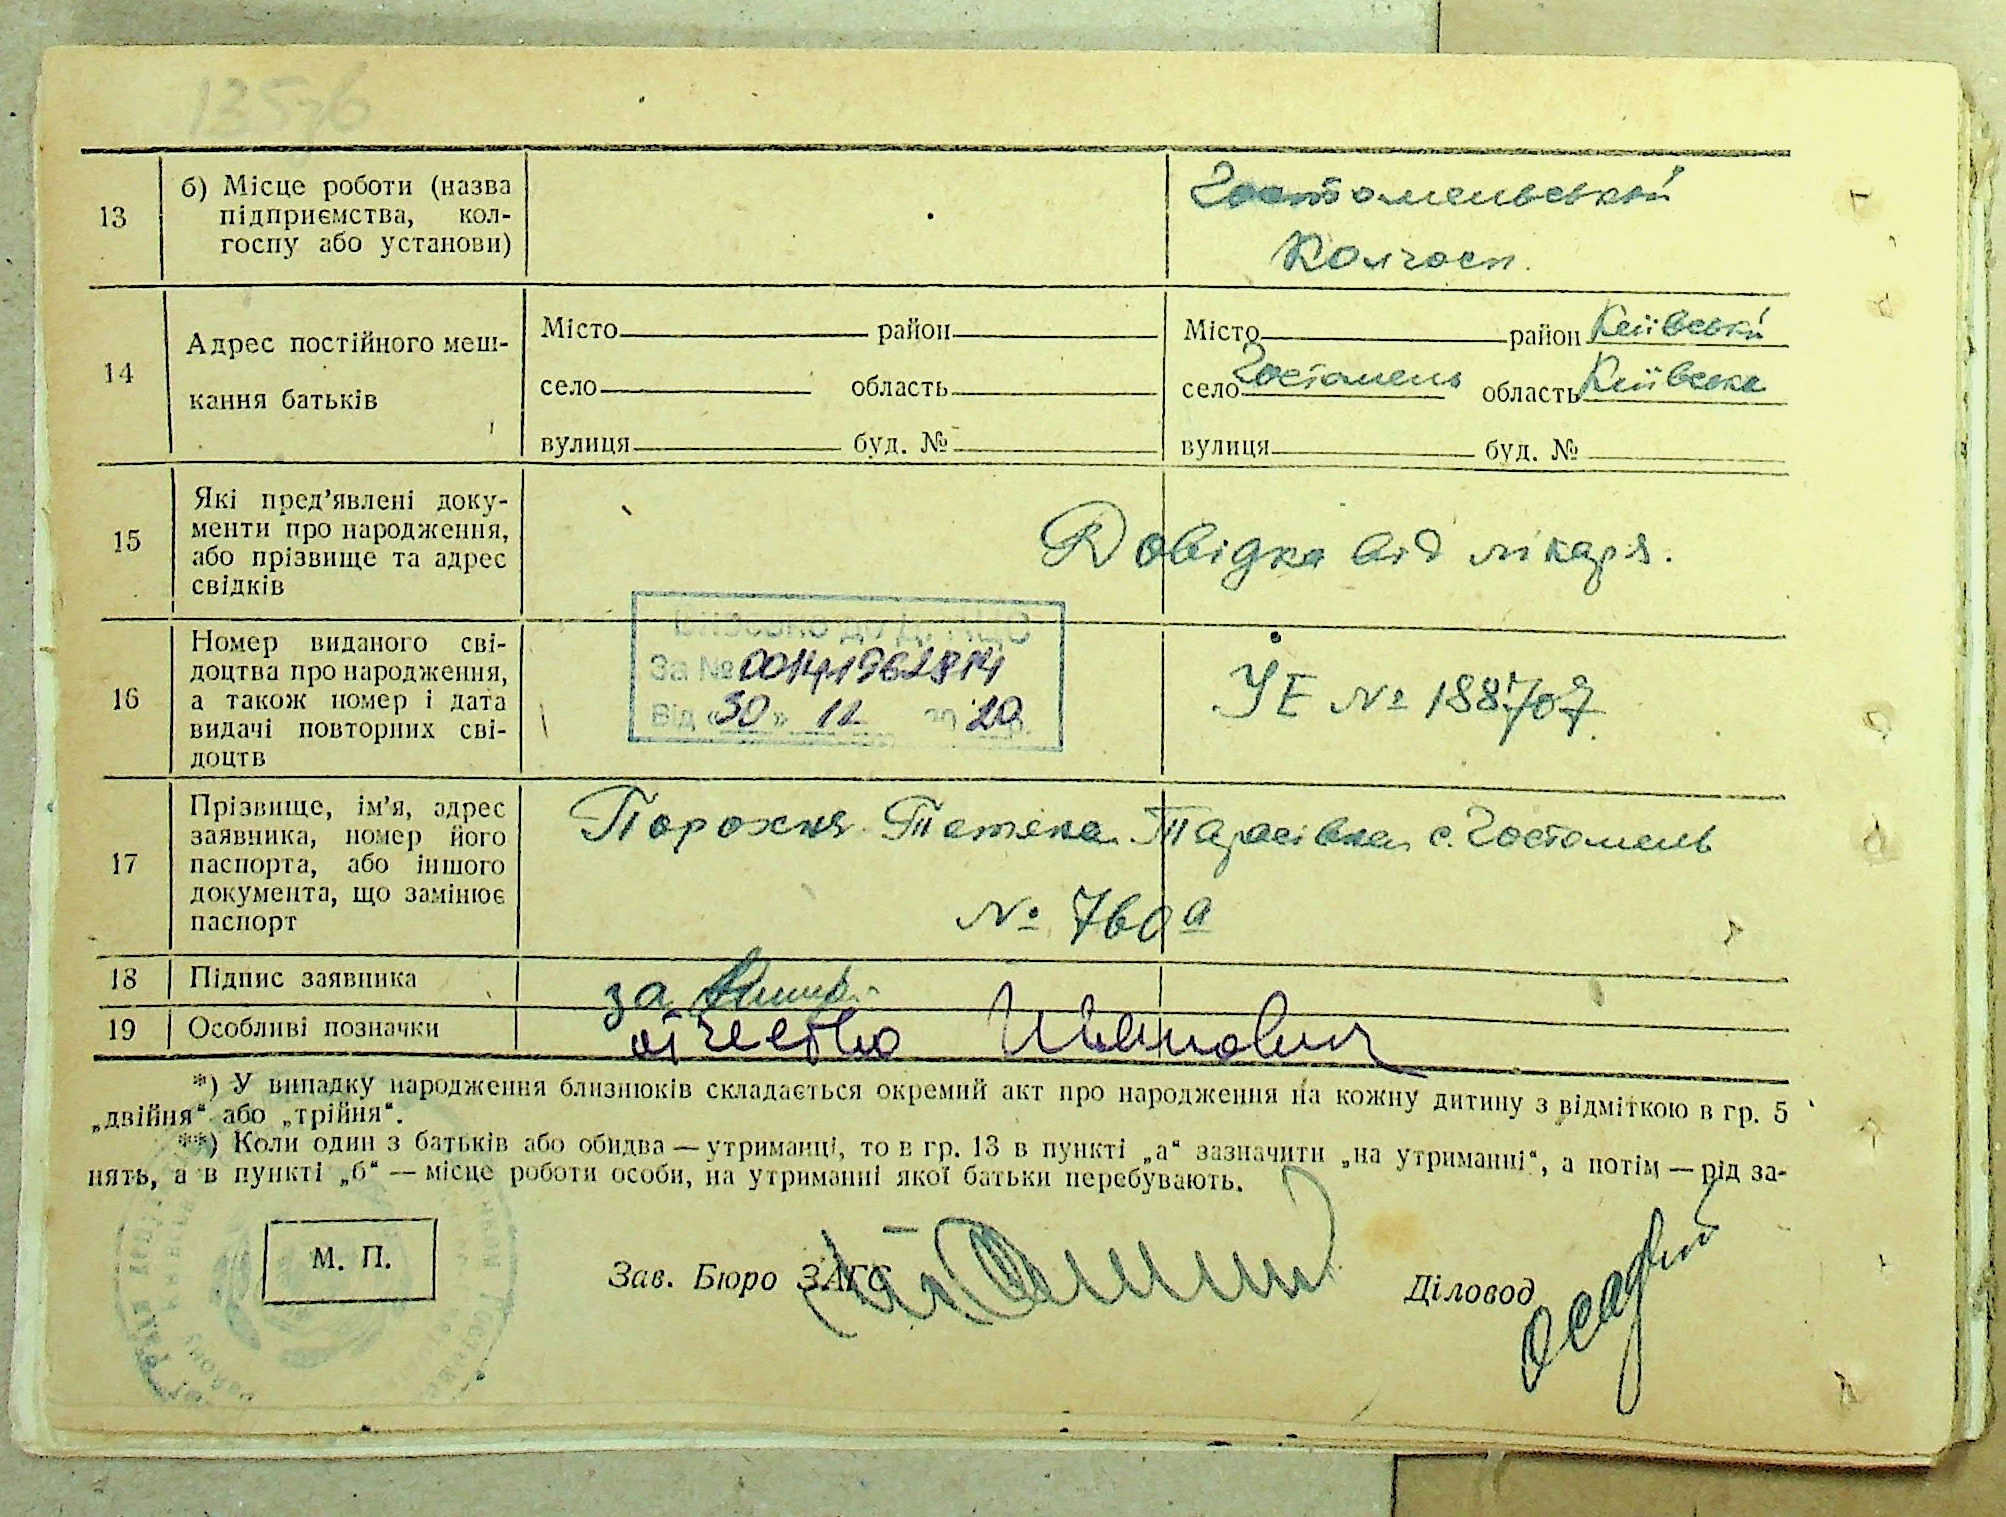 135зб
13
б) Місце роботи (назва
підприємства, кол-
госпу або установи)
Гостомельський
Колгосп.
14
Адрес постійного меш-
кання батьків
Місто район
село область
вулиця буд. №
Місто район Київськ.
село Гостомель область Київська
вулиця буд. №
15
Які пред’явлені доку-
менти про народження,
або прізвище та адрес
свідків
Довідка від лікаря.
16
Номер виданого сві-
доцтва про народження,
а також номер і дата
видачі повторних сві-
доцтв
За № 00141962814
Від «30» 12 20 р.
УЕ № 188707
17
Прізвище, ім’я, адрес
заявника, номер його
паспорта, або іншого
документа, що замінює
паспорт
Порохня Тетяна Тарасівна с. Гостомель
№ 760а
18
Підпис заявника
за
19
Особливі позначки
отчество Иванович
*) У випадку народження близнюків складається окремий акт про народження на кожну дитину з відміткою в гр. 5
„двійня“ або „трійня“.
**) Коли один з батьків або обидва — утриманці, то в гр. 13 в пункті „а“ зазначити „на утриманні“, а потім — рід за-
нять, а в пункті „б“ — місце роботи особи, на утриманні якої батьки перебувають.
М. П.
Зав. Бюро ЗАГС
Діловод